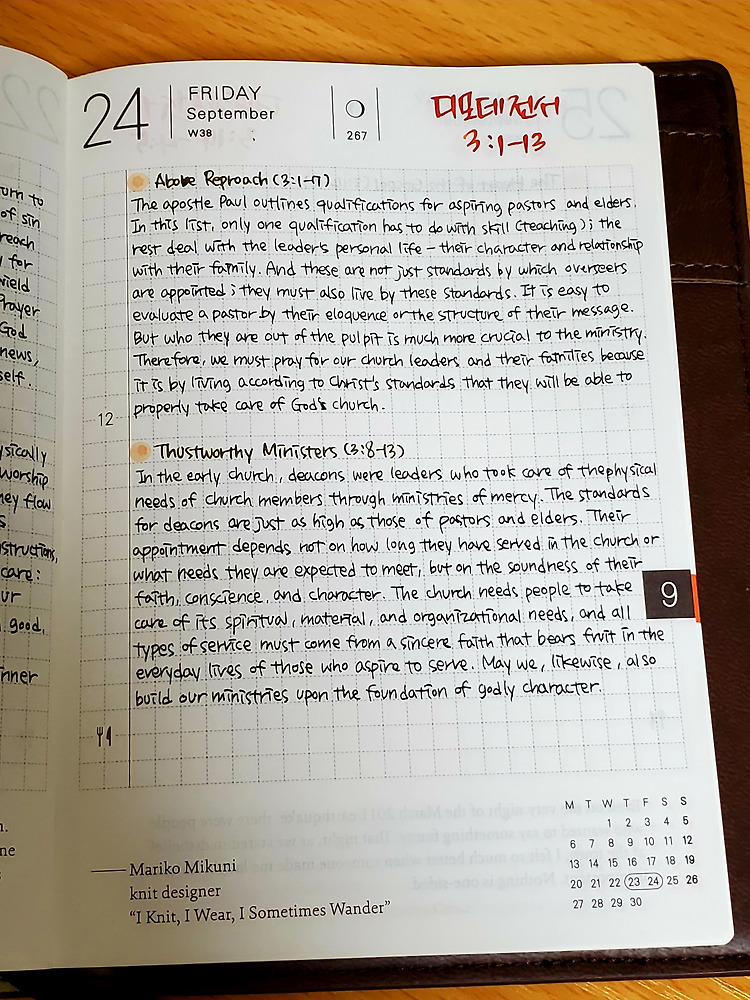 24
FRIDAY
September
W38
267
디모데전서
3:1-13
Above Reproach (3:1-7)
The apostle Paul outlines qualifications for aspiring pastors and elders.
In this list, only one qualification has to do with skill (teaching); the
rest deal with the leader's personal life - their character and relationship
with their family. And these are not just standards by which overseers
are appointed; they must also live by these standards. It is easy to
evaluate a pastor by their eloquence or the structure of their message.
But who they are out of the pulpit is much more crucial to the ministry.
Therefore, we must pray for our church leaders and their families because
it is by living according to Christ's standards that they will be able to
properly take care of God's church.
12
Thustworthy Ministers (3:8-13)
In the early church, deacons were leaders who took care of the physical
needs of church members through ministries of mercy. The standards
for deacons are just as high as those of pastors and elders. Their
appointment depends not on how long they have served in the church or
what needs they are expected to meet, but on the soundness of their
faith, conscience, and character. The church needs people to take
care of its spiritual, material, and organizational needs, and all
types of service must come from a sincere faith that bears fruit in the
everyday lives of those who aspire to serve. May we, likewise, also
build our ministries upon the foundation of godly character.
9
urn to
of sin
reach
for
wield
Prayer
God
news,
self.
ysically
worship
hey flow
s
structions,
care:
ur
good,
nner
n.
ne
Mariko Mikuni
knit designer
"I Knit, I Wear, I Sometimes Wander"
M T W T F S S
1 2 3 4 5
6 7 8 9 10 11 12
13 14 15 16 17 18 19
20 21 22 23 24 25 26
27 28 29 30